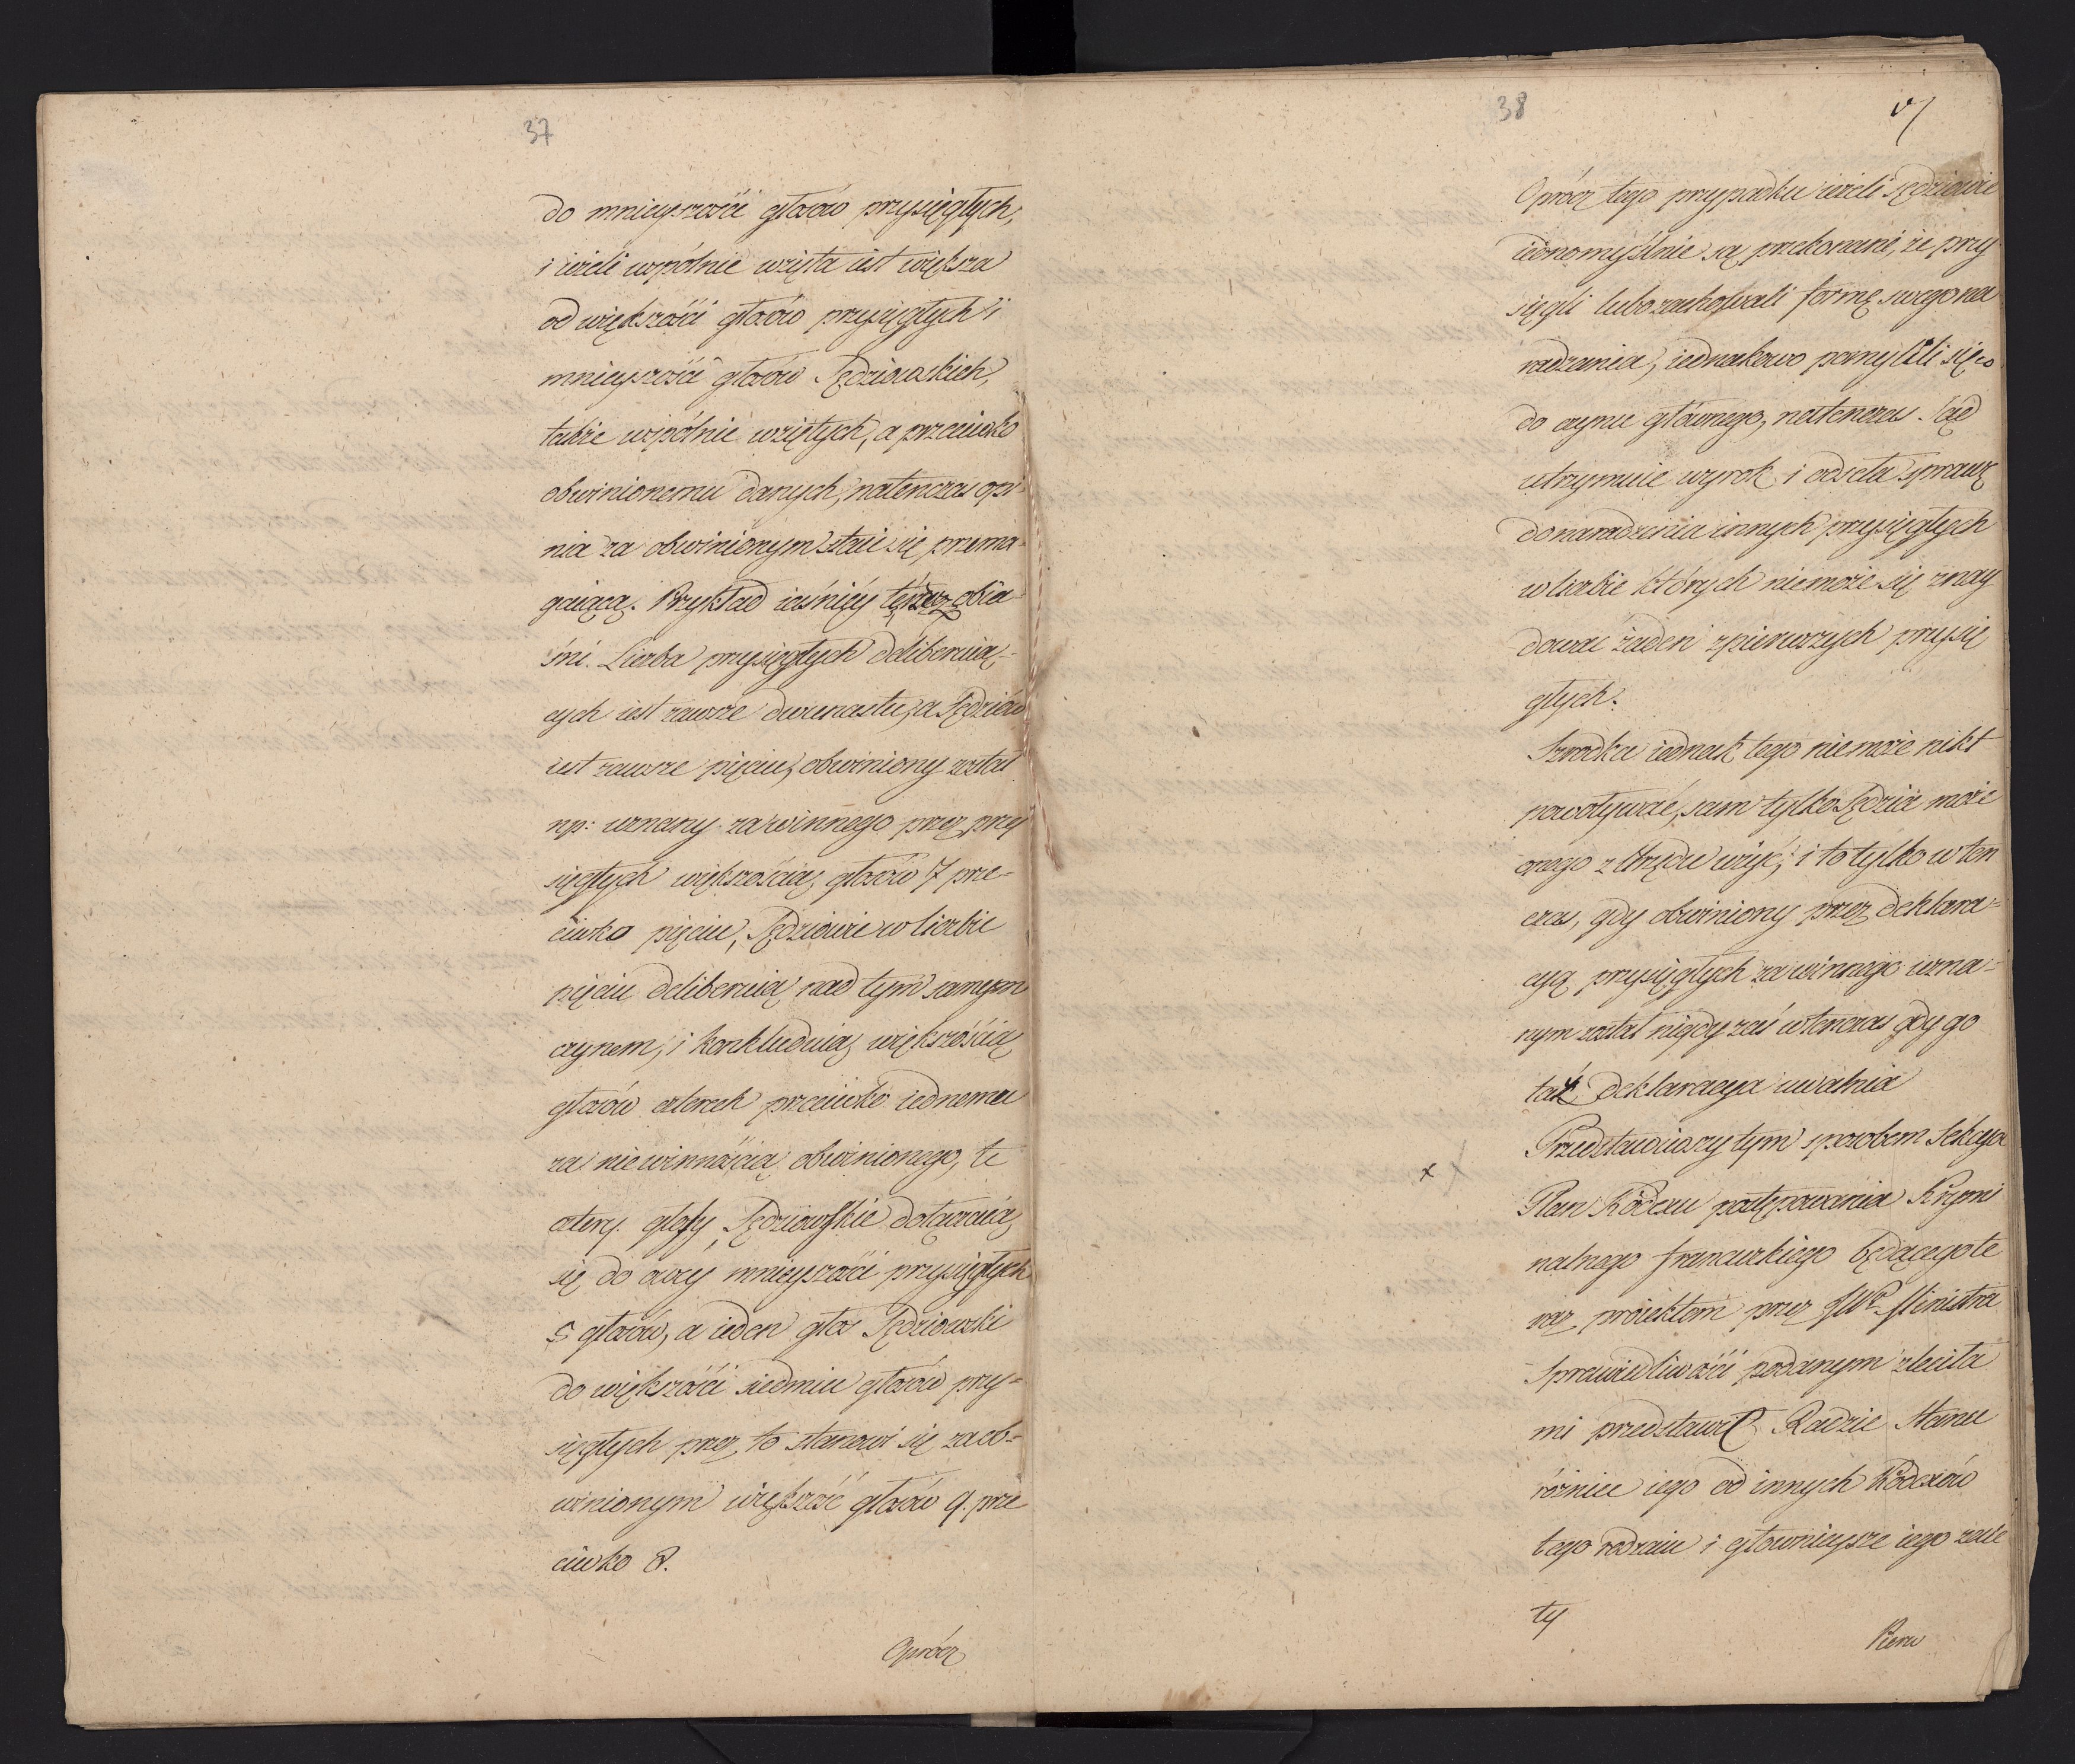 37
do mnieyszości głosów przysięgłych,
i ieżeli wspólnie wzięta iest większa
od większości głosów przysięgłych i
mnieyszości głosów Sędziowskich,
także wspólnie wziętych, a przeciwko
obwinionemu danych, natenczas opi-
nia za obwinionym staie się przema-
gaiącą. Przykład iaśniéy obia-
śni. Liczba przysięgłych deliberuią-
cych iest zawsze dwunastu, a Sędziów
iest zawsze pięciu, obwiniony został
np: uznany za winnego przez przy
sięgłych większością głosów 7 prze-
ciwko pięciu, Sędziowie w liczbie
pięciu deliberuią nad tym samym
czynem, i konkluduią większością
głosów czterech przeciwko iednemu
za niewinnością obwinionego, te
cztery głosy Sędziowskie dołączaią
się do owey mnieyszości przysięgłych
5 głosów, a ieden głos Sędziowski
do większości siedmiu głosów przy-
sięgłych przez to stanowi się za ob-
winionym większość głosów 9. prze
ciwko 8.
Oprócz
38
Oprócz tego przypadku ieżeli Sędziowie
iednomyślnie są przekonani, że przy
sięgli lubo zachowali formę swego na
radzania, iednakowo pomylili się co
do czynu głównego, natenczas Sąd
utrzymuie wyrok i odseła sprawę
do naradzenia innych przysięgłych
w liczbie których nie może się znay
dować żaden z pierwszych przysię
głych.
Szrodka iednak tego nie może nikt
powoływać, sam tylko Sędzia może
onego z Urzędu użyć, i to tylko w ten
czas, gdy obwiniony przez deklara-
cyą przysięgłych za winnego uzna-
nym został nigdy zaś wtenczas gdy go
taż deklaracya uwalnia
Przedstawiwszy tym sposobem Sekcya
x
Plan Kodexu postępowania Krymi
nalnego francuskiego będącego te
raz proiektem przez JWo Ministra
Sprawiedliwości podanym zleciła
mi przedstawić Radzie Stanu
różnice iego od innych Kodexów
tego rodzaiu i głownieysze iego zale
ty
Pierw